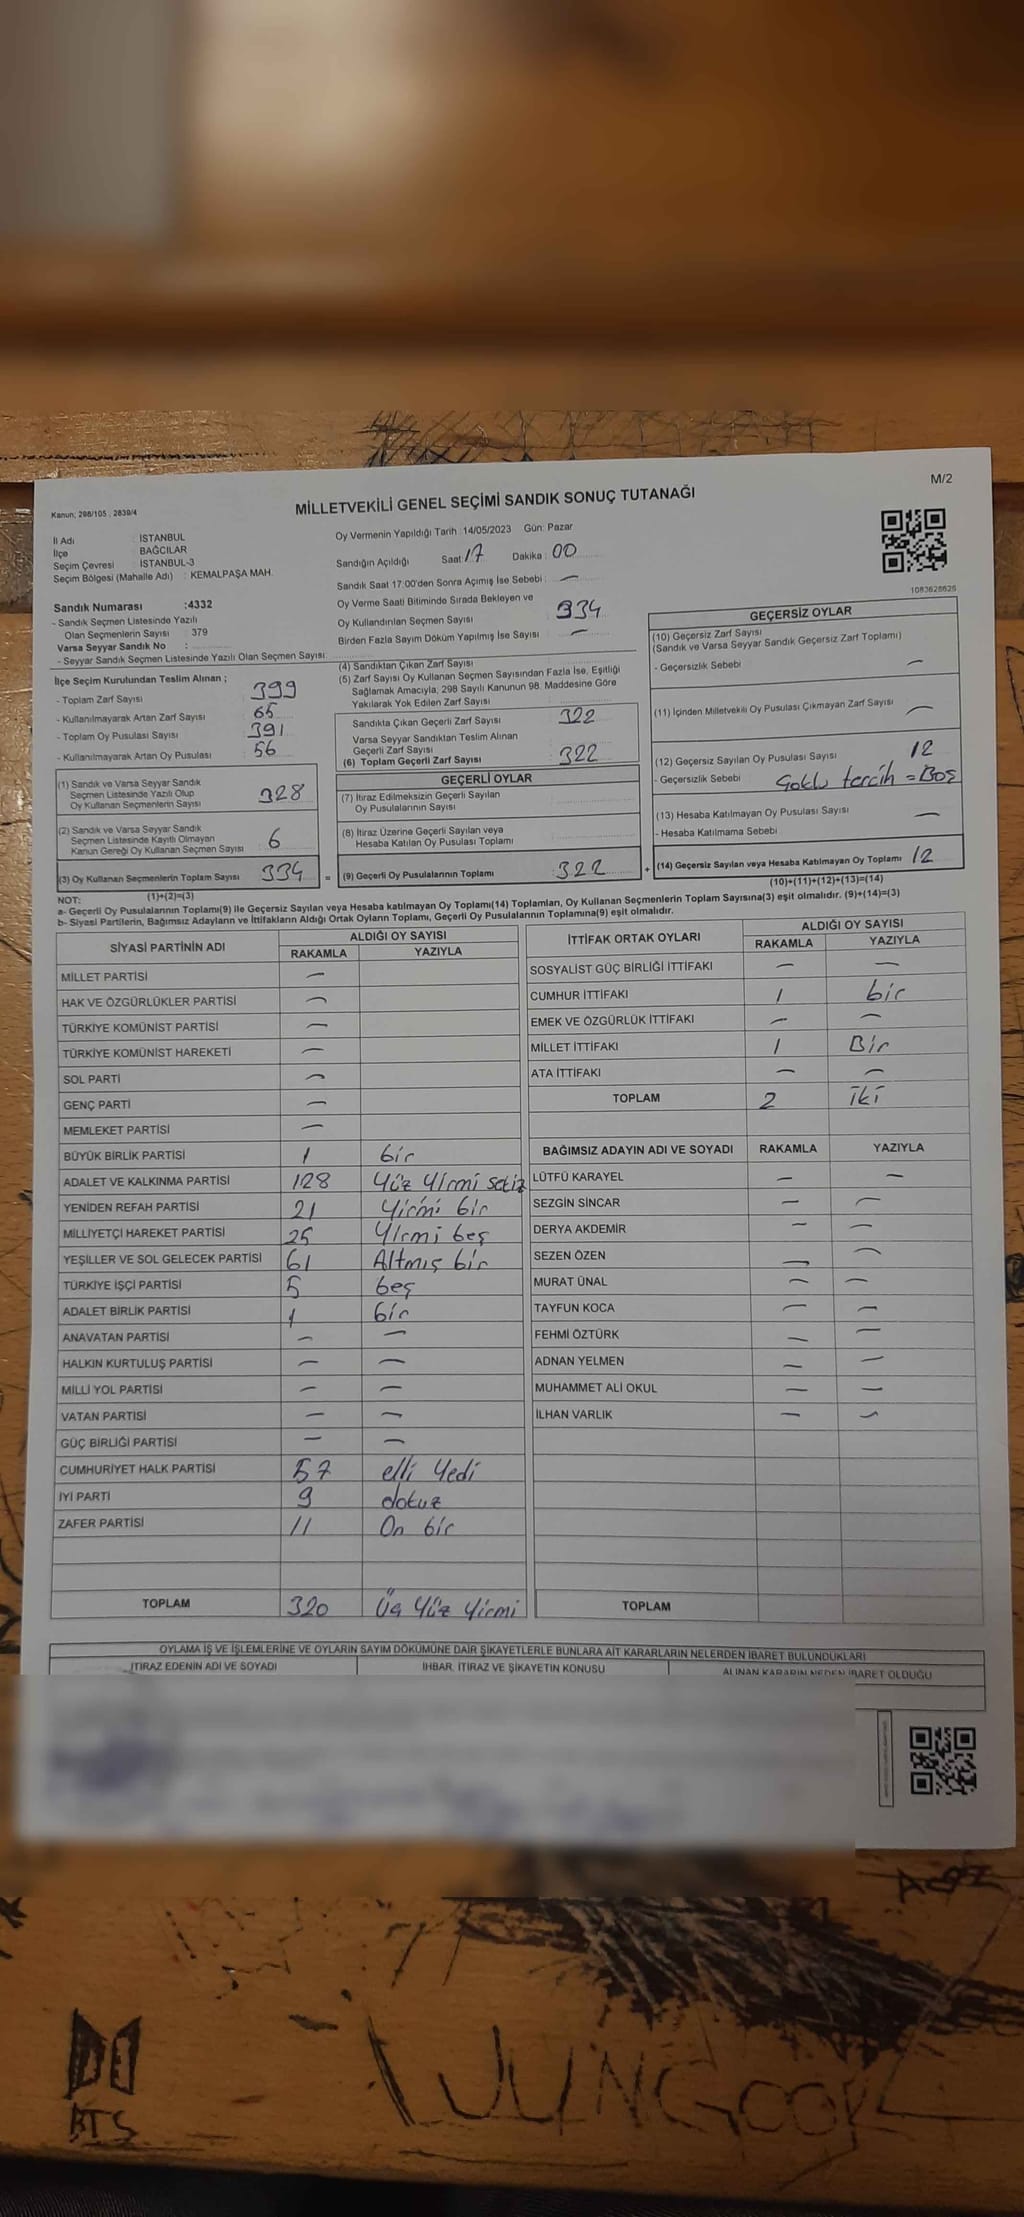 M/2
Kanun; 298/105 , 2839/4
MİLLETVEKİLİ GENEL SEÇİMİ SANDIK SONUÇ TUTANAĞI
İl Adı : İSTANBUL
İlçe : BAĞCILAR
Seçim Çevresi : İSTANBUL-3
Seçim Bölgesi (Mahalle Adı) : KEMALPAŞA MAH.
Sandık Numarası :4332
- Sandık Seçmen Listesinde Yazılı
Olan Seçmenlerin Sayısı : 379
Varsa Seyyar Sandık No :
- Seyyar Sandık Seçmen Listesinde Yazılı Olan Seçmen Sayısı:
Oy Vermenin Yapıldığı Tarih :14/05/2023 Gün: Pazar
Sandığın Açıldığı Saat: 17 Dakika : 00
Sandık Saat 17:00'den Sonra Açımış İse Sebebi : —
Oy Verme Saati Bitiminde Sırada Bekleyen ve
Oy Kullandırılan Seçmen Sayısı 334
Birden Fazla Sayım Döküm Yapılmış İse Sayısı —
1083628626
İlçe Seçim Kurulundan Teslim Alınan ;
- Toplam Zarf Sayısı 399
- Kullanılmayarak Artan Zarf Sayısı 65
- Toplam Oy Pusulası Sayısı 391
- Kullanılmayarak Artan Oy Pusulası 56
(1) Sandık ve Varsa Seyyar Sandık
Seçmen Listesinde Yazılı Olup
Oy Kullanan Seçmenlerin Sayısı 328
(2) Sandık ve Varsa Seyyar Sandık
Seçmen Listesinde Kayıtlı Olmayan
Kanun Gereği Oy Kullanan Seçmen Sayısı 6
(3) Oy Kullanan Seçmenlerin Toplam Sayısı 334
(4) Sandıktan Çıkan Zarf Sayısı
(5) Zarf Sayısı Oy Kullanan Seçmen Sayısından Fazla İse, Eşitliği
Sağlamak Amacıyla, 298 Sayılı Kanunun 98. Maddesine Göre
Yakılarak Yok Edilen Zarf Sayısı
Sandıkta Çıkan Geçerli Zarf Sayısı 322
Varsa Seyyar Sandıktan Teslim Alınan
Geçerli Zarf Sayısı
(6) Toplam Geçerli Zarf Sayısı 322
GEÇERLİ OYLAR
(7) İtiraz Edilmeksizin Geçerli Sayılan
Oy Pusulalarının Sayısı
(8) İtiraz Üzerine Geçerli Sayılan veya
Hesaba Katılan Oy Pusulası Toplamı
= (9) Geçerli Oy Pusulalarının Toplamı 322 +
GEÇERSİZ OYLAR
(10) Geçersiz Zarf Sayısı
(Sandık ve Varsa Seyyar Sandık Geçersiz Zarf Toplamı)
- Geçersizlik Sebebi —
(11) İçinden Milletvekili Oy Pusulası Çıkmayan Zarf Sayısı —
(12) Geçersiz Sayılan Oy Pusulası Sayısı 12
- Geçersizlik Sebebi Çoklu tercih = Boş
(13) Hesaba Katılmayan Oy Pusulası Sayısı —
- Hesaba Katılmama Sebebi
(14) Geçersiz Sayılan veya Hesaba Katılmayan Oy Toplamı 12
NOT: (1)+(2)=(3)
(10)+(11)+(12)+(13)=(14)
a- Geçerli Oy Pusulalarının Toplamı(9) ile Geçersiz Sayılan veya Hesaba katılmayan Oy Toplamı(14) Toplamları, Oy Kullanan Seçmenlerin Toplam Sayısına(3) eşit olmalıdır. (9)+(14)=(3)
b- Siyasi Partilerin, Bağımsız Adayların ve İttifakların Aldığı Ortak Oyların Toplamı, Geçerli Oy Pusulalarının Toplamına(9) eşit olmalıdır.
SİYASİ PARTİNİN ADI ALDIĞI OY SAYISI
RAKAMLA YAZIYLA
MİLLET PARTİSİ —
HAK VE ÖZGÜRLÜKLER PARTİSİ —
TÜRKİYE KOMÜNİST PARTİSİ —
TÜRKİYE KOMÜNİST HAREKETİ —
SOL PARTİ —
GENÇ PARTİ —
MEMLEKET PARTİSİ —
BÜYÜK BİRLİK PARTİSİ 1 bir
ADALET VE KALKINMA PARTİSİ 128 Yüz Yirmi sekiz
YENİDEN REFAH PARTİSİ 21 Yirmi bir
MİLLİYETÇİ HAREKET PARTİSİ 25 Yirmi beş
YEŞİLLER VE SOL GELECEK PARTİSİ 61 Altmış bir
TÜRKİYE İŞÇİ PARTİSİ 5 beş
ADALET BİRLİK PARTİSİ 1 bir
ANAVATAN PARTİSİ — —
HALKIN KURTULUŞ PARTİSİ — —
MİLLİ YOL PARTİSİ — —
VATAN PARTİSİ — —
GÜÇ BİRLİĞİ PARTİSİ — —
CUMHURİYET HALK PARTİSİ 57 elli Yedi
İYİ PARTİ 9 dokuz
ZAFER PARTİSİ 11 On bir
TOPLAM 320 Üç Yüz Yirmi
İTTİFAK ORTAK OYLARI ALDIĞI OY SAYISI
RAKAMLA YAZIYLA
SOSYALİST GÜÇ BİRLİĞİ İTTİFAKI — —
CUMHUR İTTİFAKI 1 bir
EMEK VE ÖZGÜRLÜK İTTİFAKI — —
MİLLET İTTİFAKI 1 Bir
ATA İTTİFAKI — —
TOPLAM 2 iki
BAĞIMSIZ ADAYIN ADI VE SOYADI RAKAMLA YAZIYLA
LÜTFÜ KARAYEL — —
SEZGİN SİNCAR — —
DERYA AKDEMİR — —
SEZEN ÖZEN — —
MURAT ÜNAL — —
TAYFUN KOCA — —
FEHMİ ÖZTÜRK — —
ADNAN YELMEN — —
MUHAMMET ALİ OKUL — —
İLHAN VARLIK — —
TOPLAM
OYLAMA İŞ VE İŞLEMLERİNE VE OYLARIN SAYIM DÖKÜMÜNE DAİR ŞİKAYETLERLE BUNLARA AİT KARARLARIN NELERDEN İBARET BULUNDUKLARI
İTİRAZ EDENİN ADI VE SOYADI İHBAR, İTİRAZ VE ŞİKAYETİN KONUSU ALINAN KARARIN NEDEN İBARET OLDUĞU
BTS
JUNGCOOK